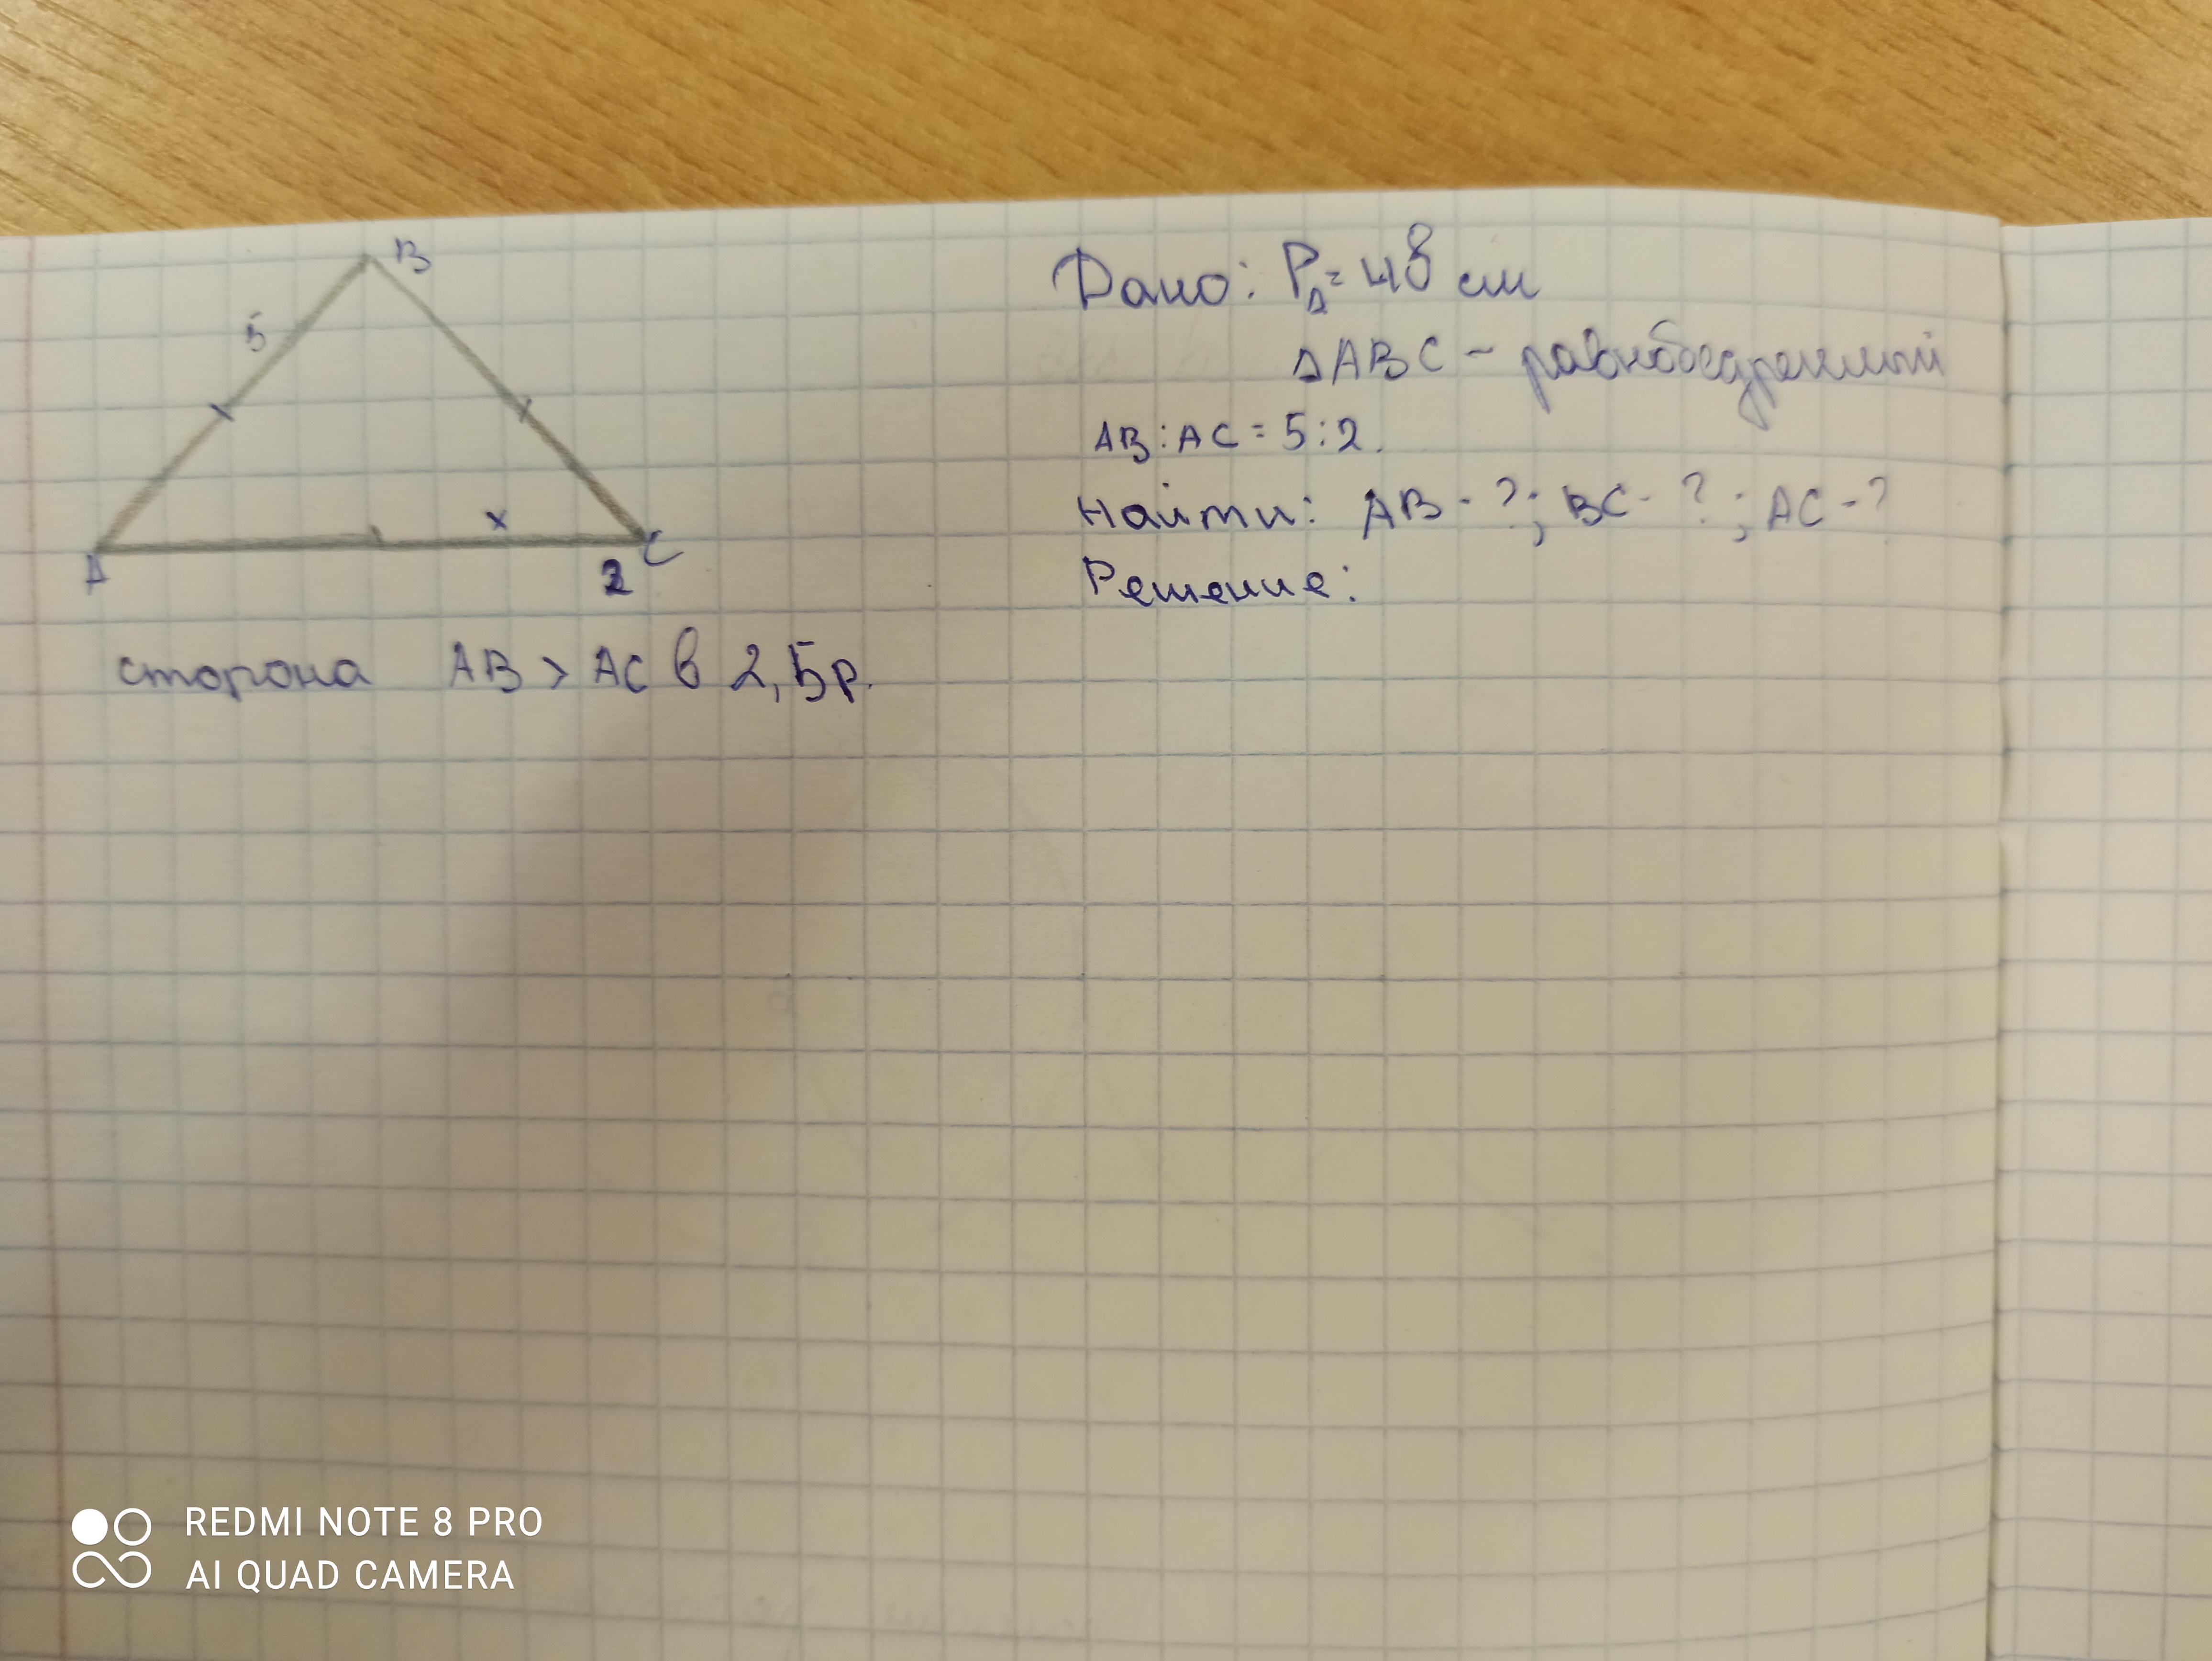 B
5
x
A
C
2
сторона AB > AC в 2,5р.
Дано: P∆ = 48 см
∆ABC - равнобедренный
AB : AC = 5 : 2.
Найти: AB - ?; BC - ?; AC - ?
Решение:
REDMI NOTE 8 PRO
AI QUAD CAMERA